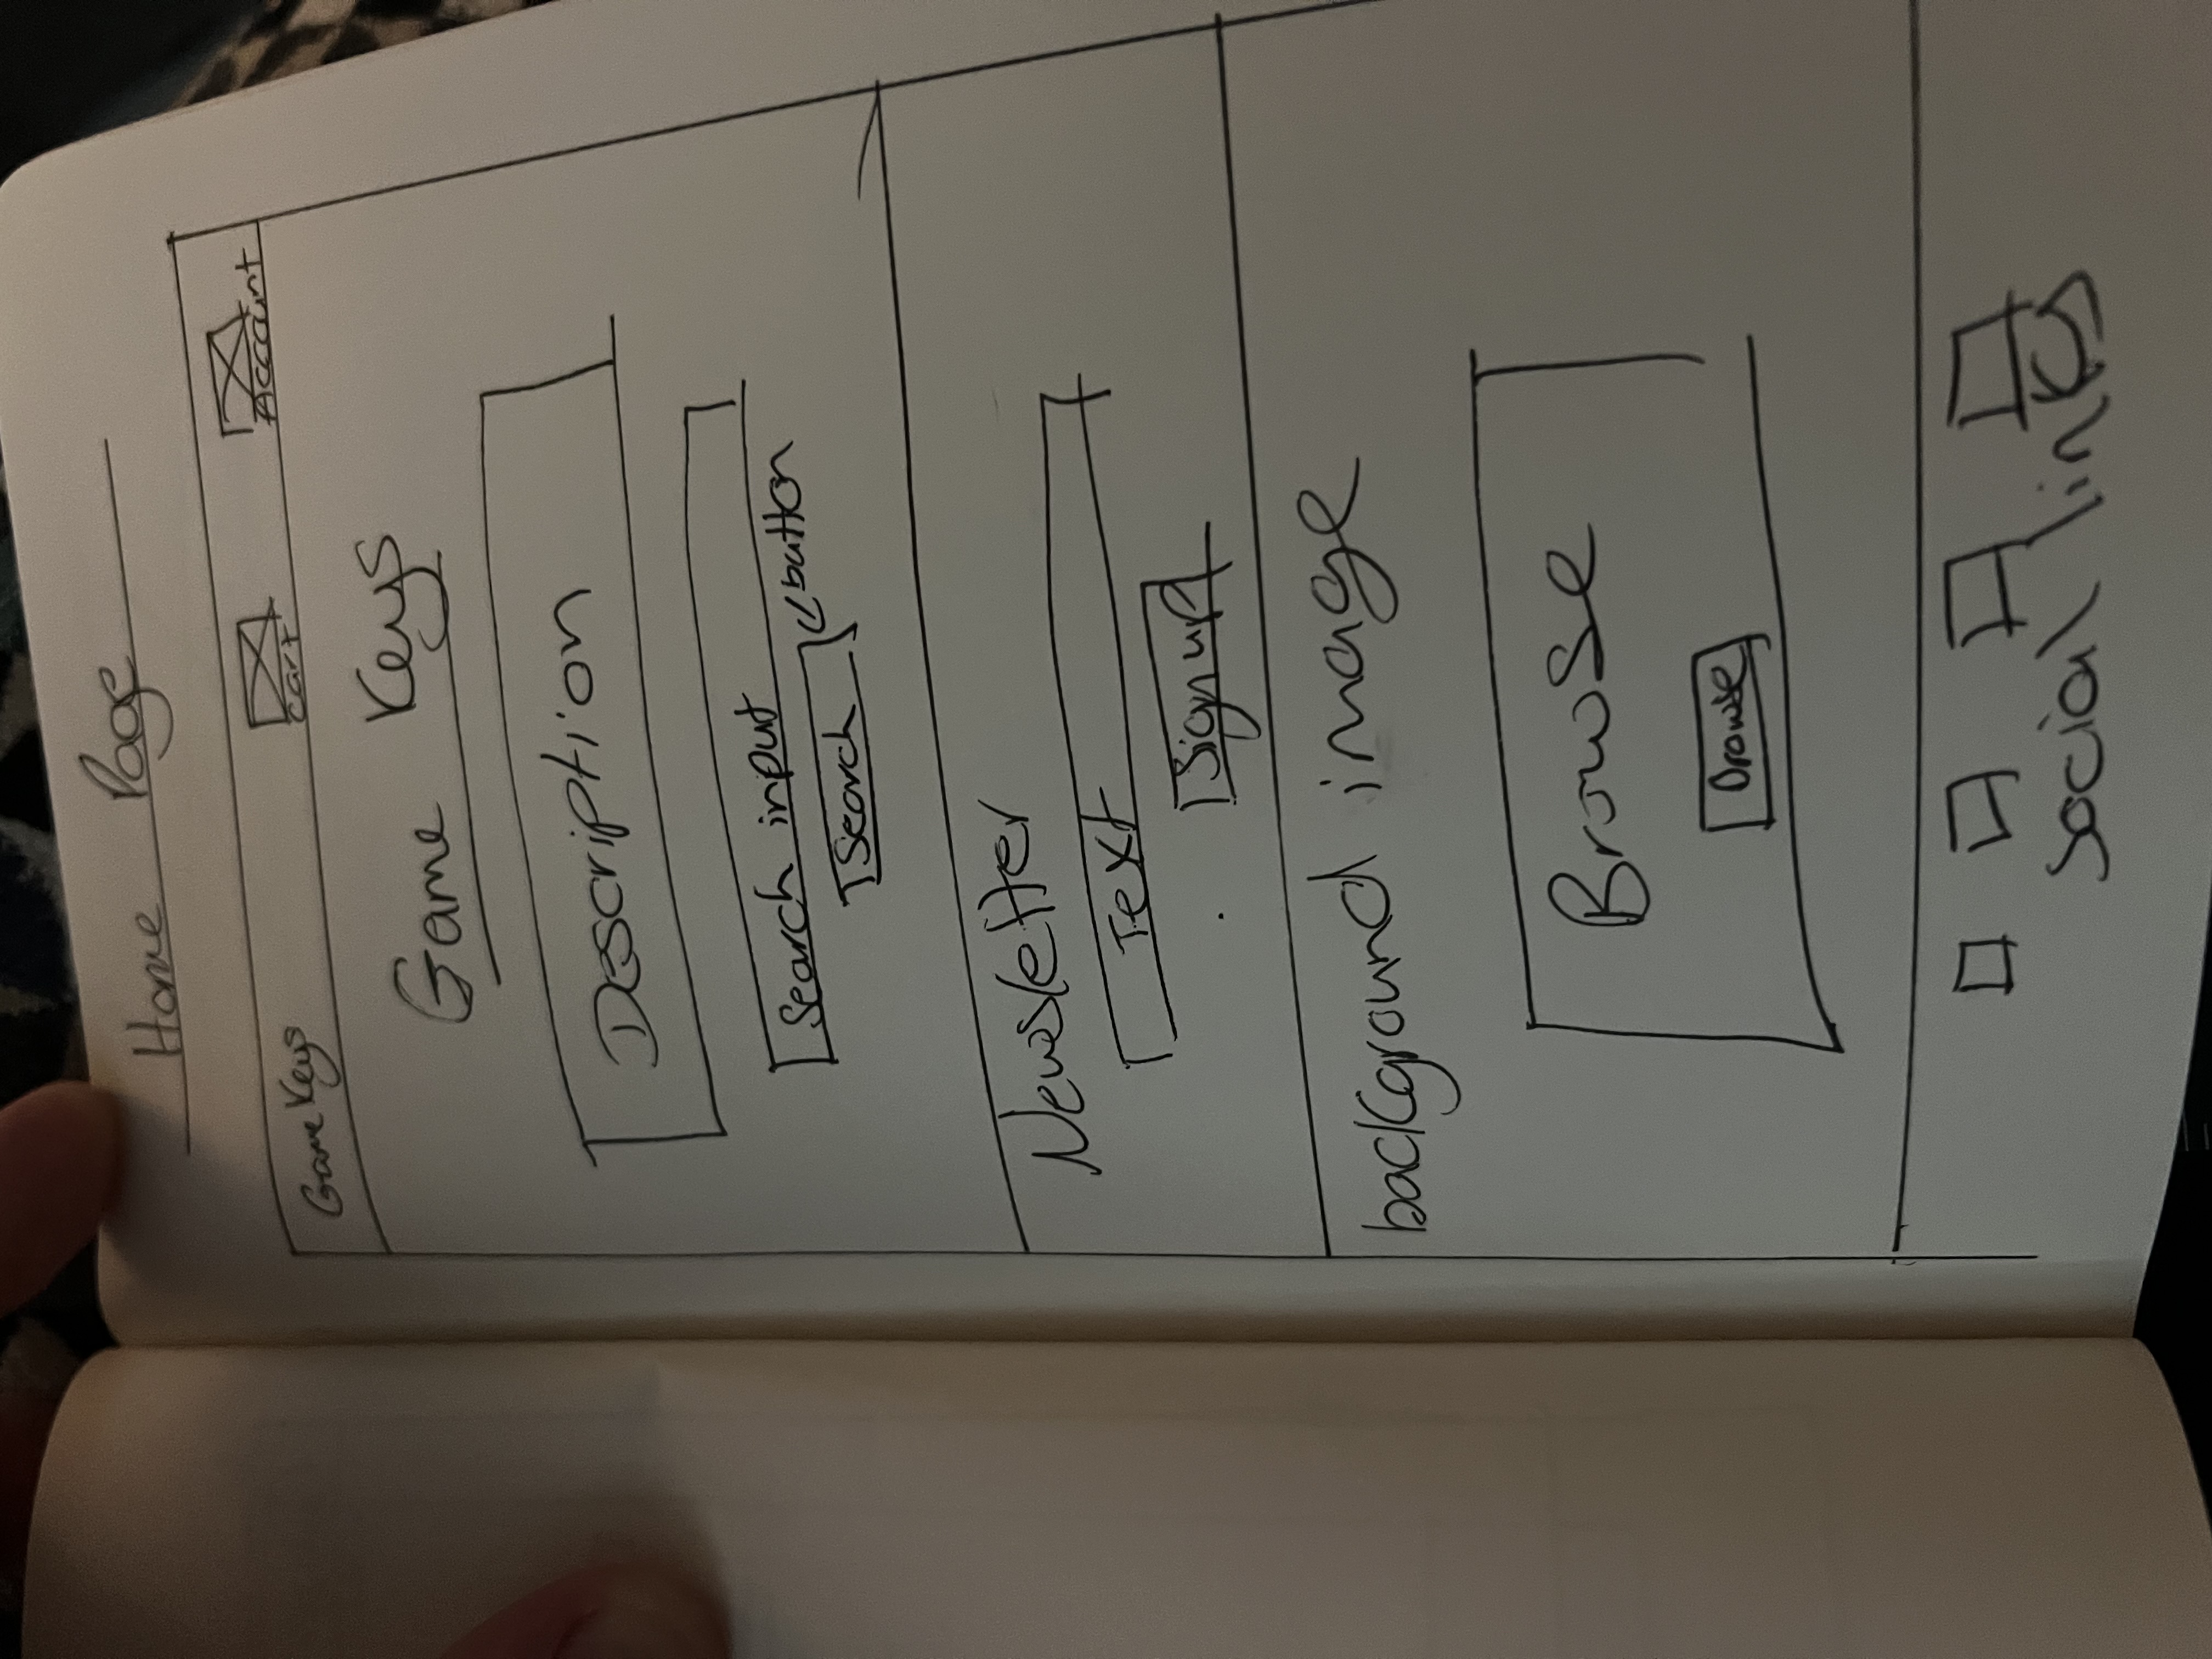 Home Page
GameKeys
Cart
Account
Game Keys
Description
Search input
Search
button
Newsletter
Text
Sign up
background image
Browse
Browse
social links